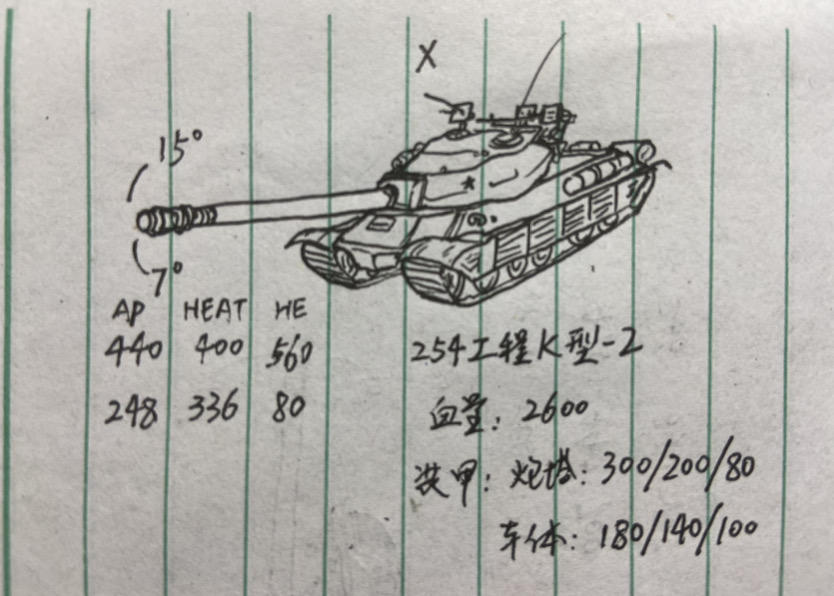 X
15°
7°
AP HEAT HE
440 400 560
248 336 80
254工程K型-2
血量：2600
装甲：炮塔：300/200/80
车体：180/140/100